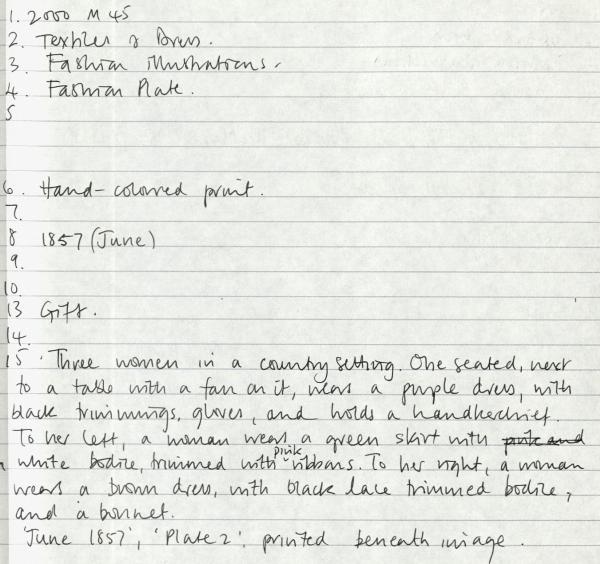 1. 2000 M 45
2. Textiles & Dress.
3. Fashion illustrations.
4. Fashion Plate.
5
6. Hand-coloured print.
7.
8 1857 (June)
9.
10.
13 Gift.
14.
15 Three women in a country setting. One seated, next
to a table with a fan on it, wears a purple dress, with
black trimmings, gloves, and holds a handkerchief.
To her left, a woman wears a green skirt with pink and
white bodice, trimmed with pink ribbons. To her right, a woman
wears a brown dress, with black lace trimmed bodice,
and a bonnet.
'June 1857', 'Plate 2', printed beneath image.